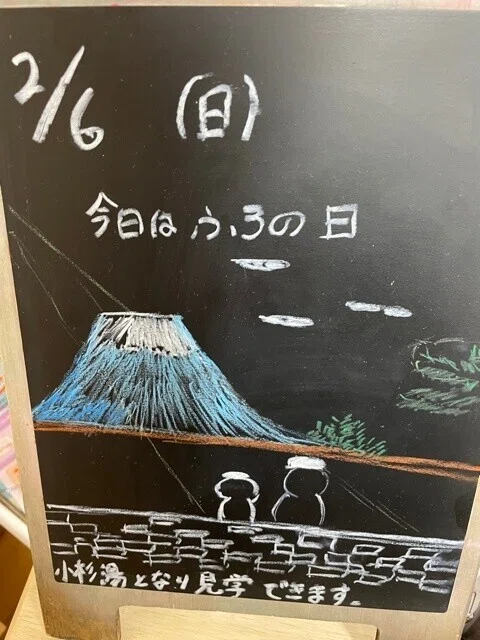 2/6 (日)
今日はふろの日
小杉湯となり見学できます。